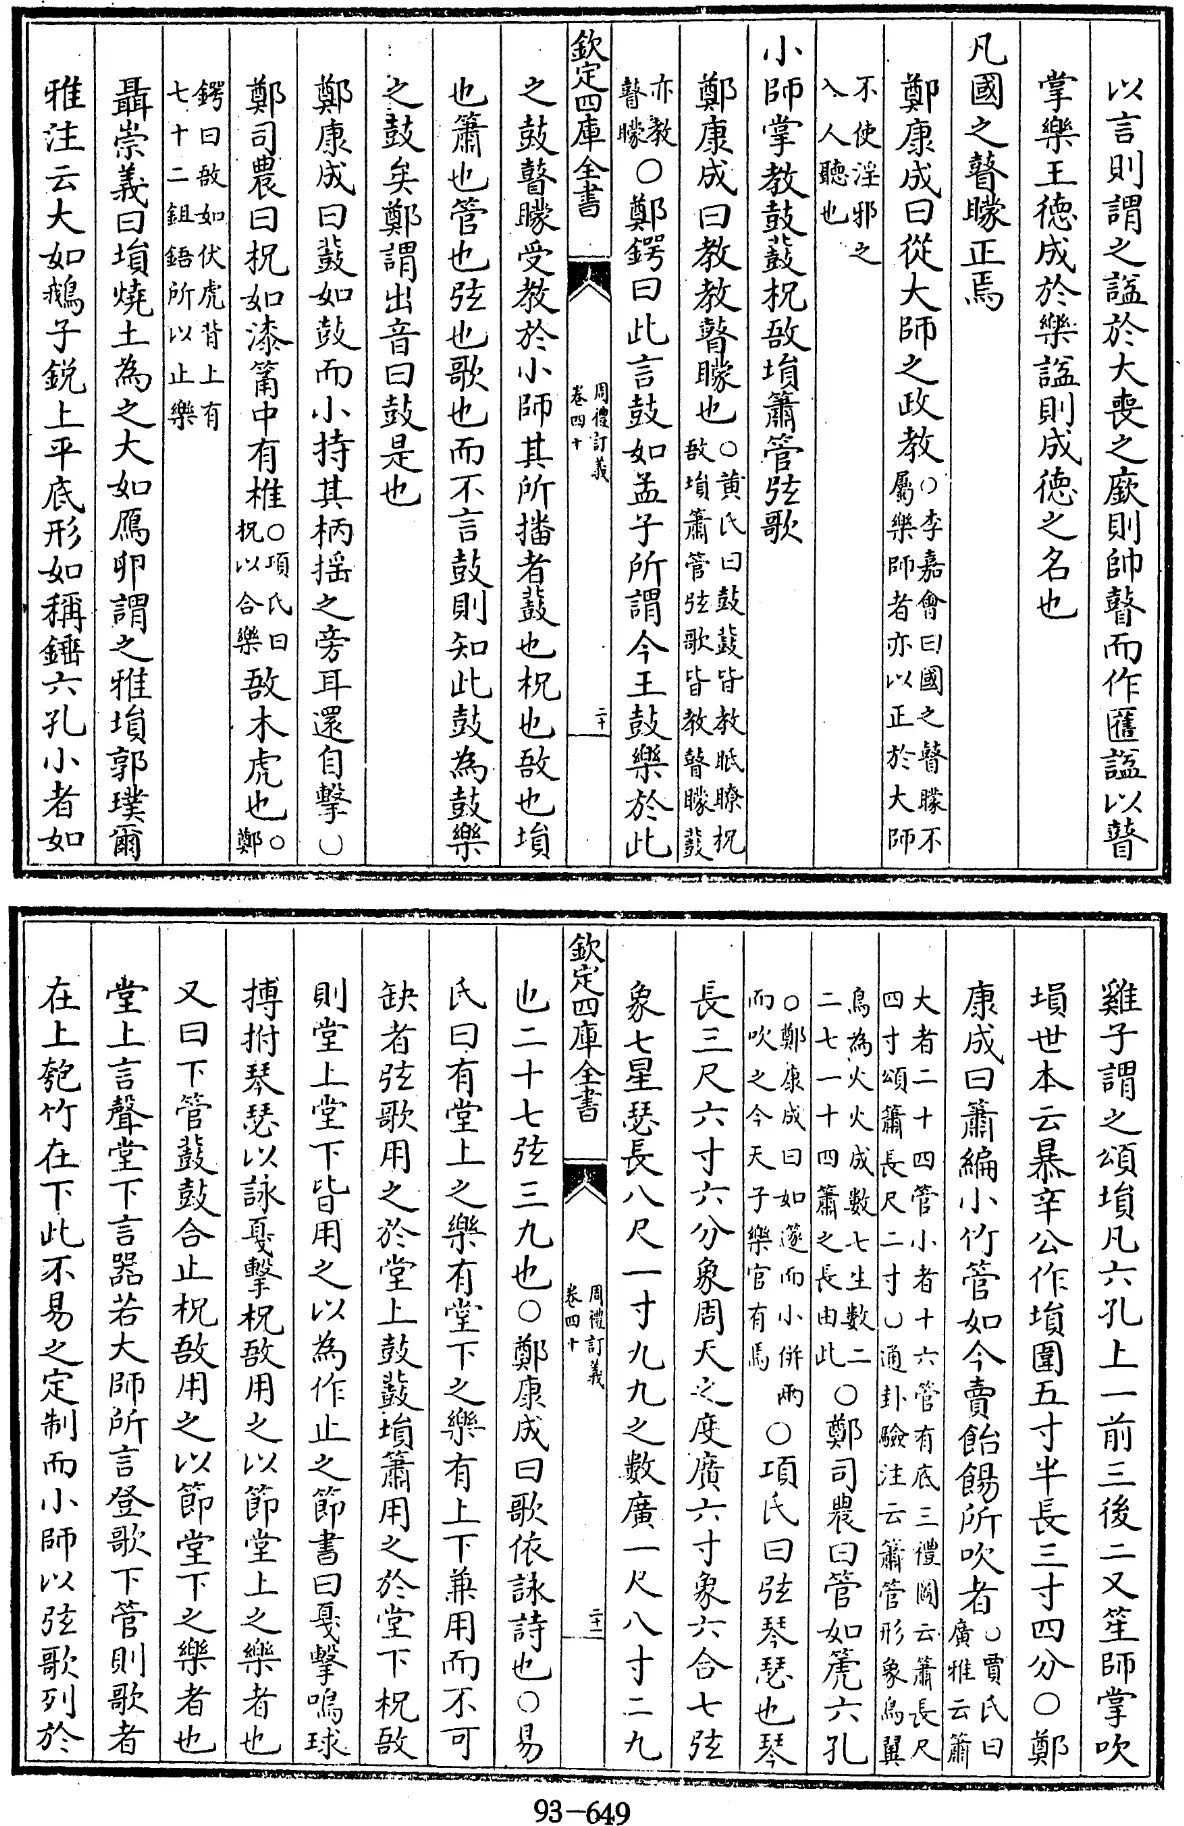 以言則謂之諡於大喪之廞則帥瞽而作匶諡以瞽
掌樂王徳成於樂諡則成徳之名也
凡國之瞽矇正焉
鄭康成曰從大師之政教○李嘉會曰國之瞽矇不屬樂師者亦以正於大師
不使淫邪之入人聽也
小師掌教鼓鼗柷敔塤簫管弦歌
鄭康成曰教教瞽矇也○黄氏曰鼓鼗皆教眡瞭柷敔塤簫管弦歌皆教瞽矇鼗
亦教瞽矇○鄭鍔曰此言鼓如孟子所謂今王鼓樂於此
欽定四庫全書 周禮訂義 卷四十 二十
之鼓瞽矇受教於小師其所播者鼗也柷也敔也塤
也簫也管也弦也歌也而不言鼓則知此鼓為鼓樂
之鼓矣鄭謂出音曰鼓是也
鄭康成曰鼗如鼓而小持其柄揺之旁耳還自擊○
鄭司農曰柷如漆筩中有椎○項氏曰柷以合樂敔木虎也○鄭
鍔曰敔如伏虎背上有七十二鉏鋙所以止樂
聶崇義曰塤燒土為之大如鴈卵謂之雅塤郭璞爾
雅注云大如鵝子鋭上平底形如稱錘六孔小者如
雞子謂之頌塤凡六孔上一前三後二又笙師掌吹
塤世本云暴辛公作塤圍五寸半長三寸四分○鄭
康成曰簫編小竹管如今賣飴餳所吹者○賈氏曰廣雅云簫
大者二十四管小者十六管有底三禮圖云簫長尺四寸頌簫長尺二寸○通卦驗注云簫管形象鳥翼
鳥為火火成數七生數二二七一十四簫之長由此○鄭司農曰管如篪六孔
○鄭康成曰如篴而小併兩而吹之今天子樂官有焉○項氏曰弦琴瑟也琴
長三尺六寸六分象周天之度廣六寸象六合七弦
象七星瑟長八尺一寸九九之數廣一尺八寸二九
欽定四庫全書 周禮訂義 卷四十 二十一
也二十七弦三九也○鄭康成曰歌依詠詩也○易
氏曰有堂上之樂有堂下之樂有上下兼用而不可
缺者弦歌用之於堂上鼓鼗塤簫用之於堂下柷敔
則堂上堂下皆用之以為作止之節書曰戞擊鳴球
搏拊琴瑟以詠戞擊柷敔用之以節堂上之樂者也
又曰下管鼗鼓合止柷敔用之以節堂下之樂者也
堂上言聲堂下言器若大師所言登歌下管則歌者
在上匏竹在下此不易之定制而小師以弦歌列於
93-649